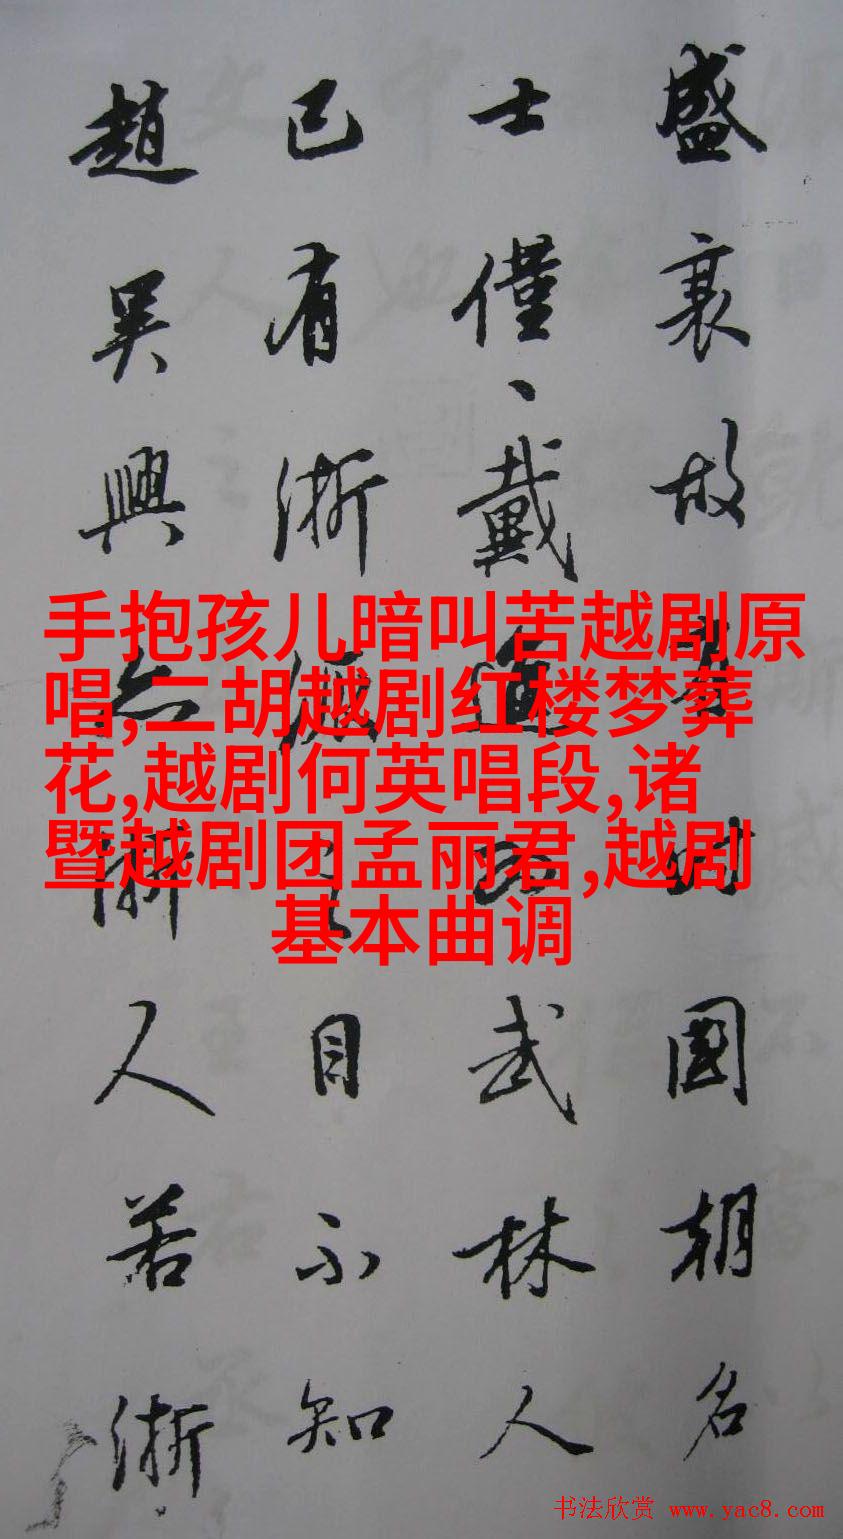 盛衰故時國朝名
士僅、戴進武林人
已有浙目不知
趙吳興亦浙人若浙
手抱孩儿暗叫苦越剧原
唱,二胡越剧红楼梦葬
花,越剧何英唱段,诸
暨越剧团孟丽君,越剧
基本曲调
书法欣赏 www.yac8.com